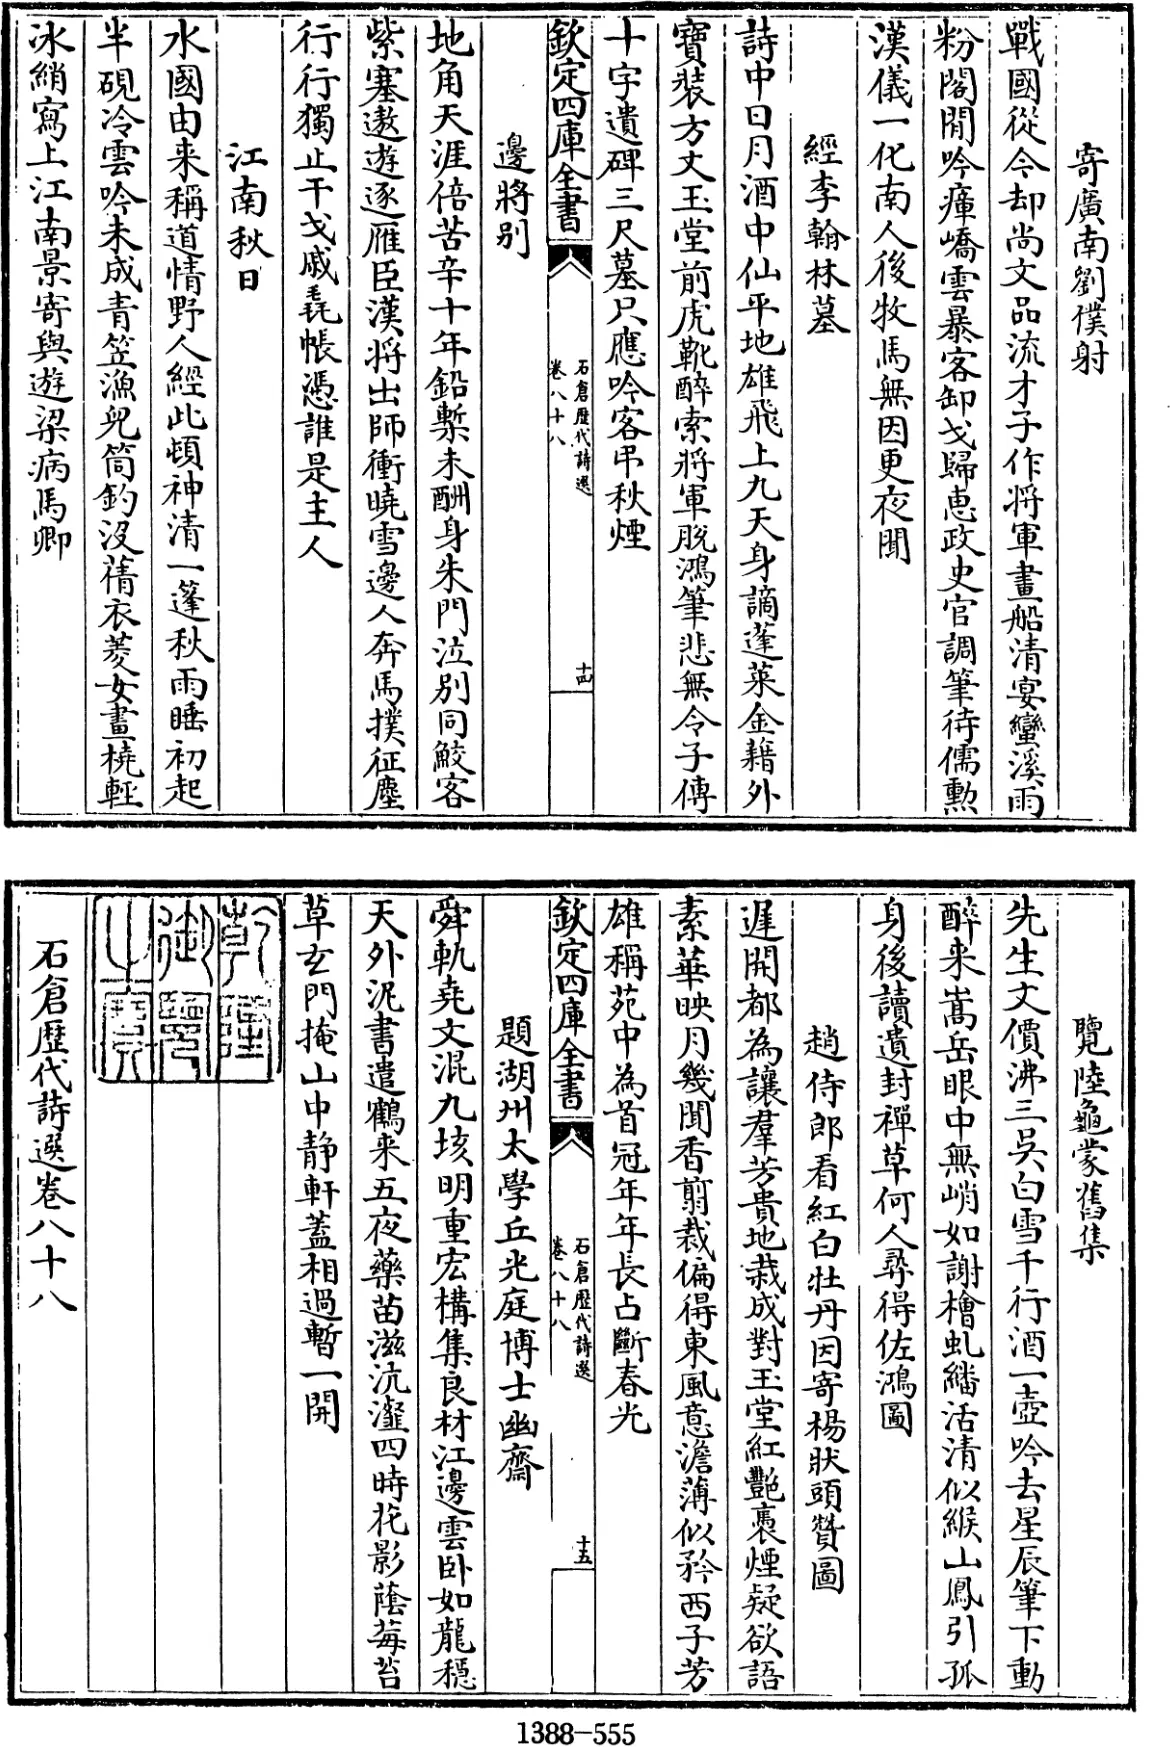 寄廣南劉僕射
戰國從今却尚文品流才子作將軍畫船清宴蠻溪雨
粉閣閒吟瘴嶠雲暴客卸戈歸惠政史官調筆待儒勲
漢儀一化南人後牧馬無因更夜聞
經李翰林墓
詩中日月酒中仙平地雄飛上九天身謫蓬萊金籍外
寶装方丈玉堂前虎靴醉索將軍脱鴻筆悲無令子傳
十字遺碑三尺墓只應吟客弔秋煙
欽定四庫全書
石倉歷代詩選
卷八十八
十四
邊將別
地角天涯倍苦辛十年鉛槧未酬身朱門泣別同鮫客
紫塞遨遊逐雁臣漢將出師衝曉雪邊人奔馬撲征塵
行行獨止干戈戚毳帳憑誰是主人
江南秋日
水國由来稱道情野人經此頓神清一篷秋雨睡初起
半硯冷雲吟未成青笠漁兒筒釣没蒨衣菱女畫橈輕
冰綃寫上江南景寄與遊梁病馬卿
覽陸龜蒙舊集
先生文價沸三吳白雪千行酒一壺吟去星辰筆下動
醉来嵩岳眼中無峭如謝檜虬蟠活清似緱山鳳引孤
身後讀遺封禪草何人尋得佐鴻圖
趙侍郎看紅白牡丹因寄楊狀頭贊圖
遲開都為讓羣芳貴地栽成對玉堂紅艷裛煙疑欲語
素華映月幾聞香剪裁偏得東風意澹薄似矜西子芳
雄稱苑中為首冠年年長占斷春光
欽定四庫全書
石倉歷代詩選
卷八十八
十五
題湖州太學丘光庭博士幽齋
舜軌堯文混九垓明重宏構集良材江邊雲卧如龍穩
天外泥書遣鶴来五夜藥苗滋沆瀣四時花影蔭莓苔
草玄門掩山中静軒蓋相過暫一開
乾隆
御覽
之寶
石倉歷代詩選卷八十八
1388-555